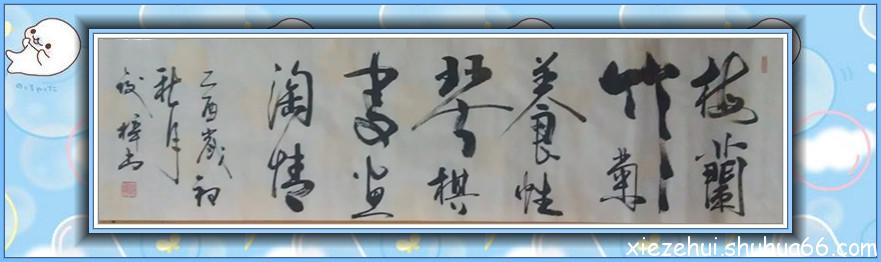 梅蘭
竹菊
養性
琴棋
書畫
淘情
乙酉歲初
秋月
xiezehui.shuhua66.com